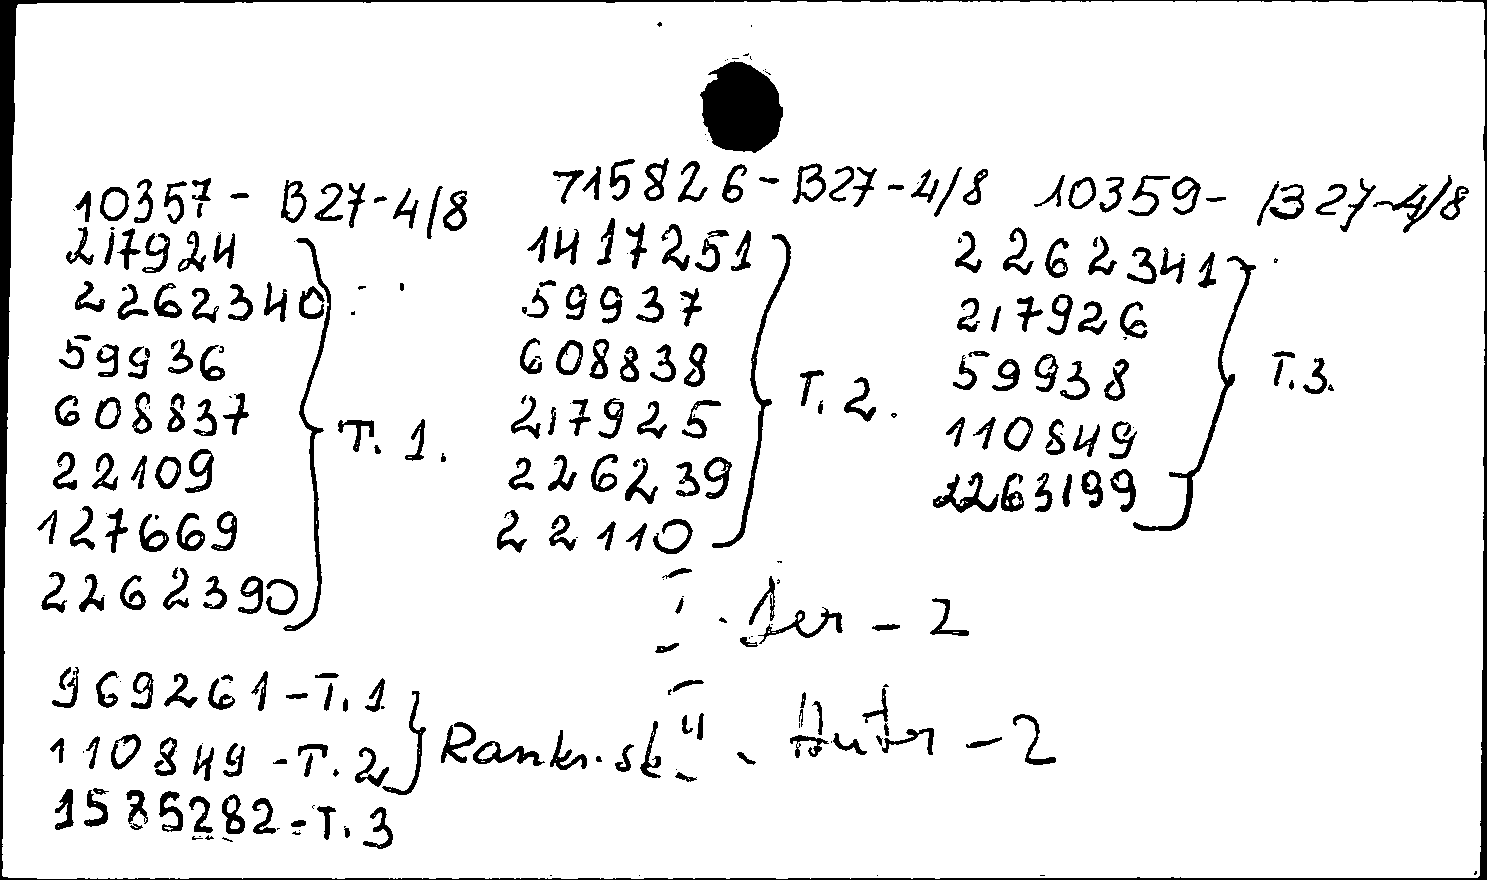 10357 - B27-4/8
217924
2262340
59936
608837
22109
127669
2262390
T. 1.
715826 - B27-4/8
1417251
59937
608838
217925
226239
22110
T. 2.
10359 - B27-4/8
2262341
217926
59938
110849
2263199
T. 3.
I. Ser - 2
II. Autr - 2
969261 - T. 1
110849 - T. 2
1585282 - T. 3